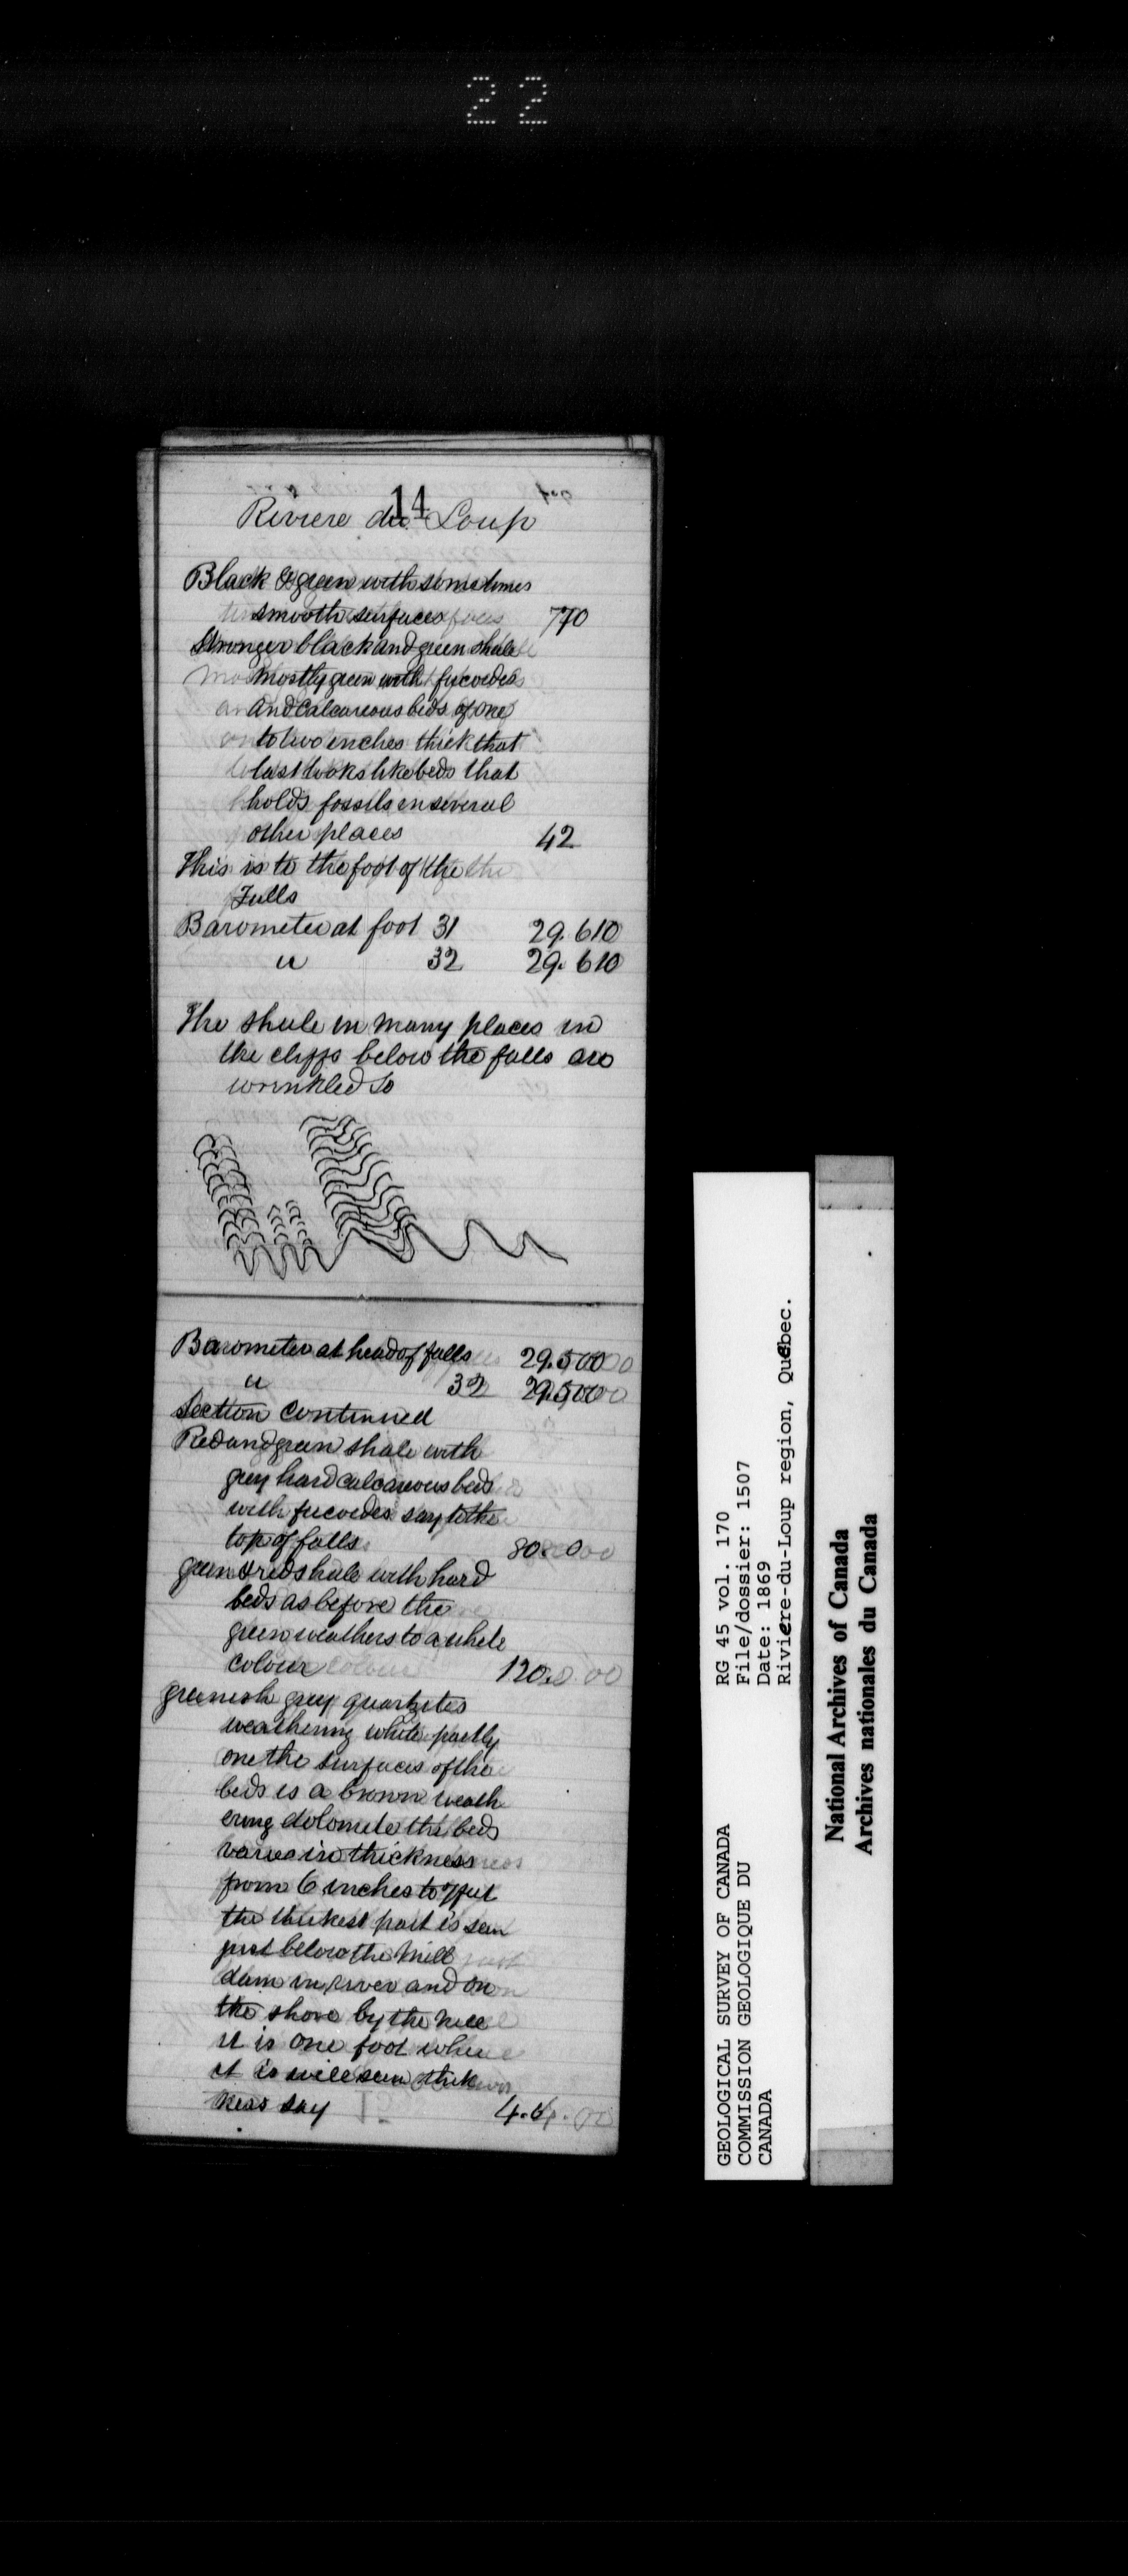 22
14
Riviere du Loup
Black & green with sometimes
smooth surfaces 770
Stronger black and green shale
mostly green with fucoedes
and calcareous beds of one
to two inches thick that
last looks like beds that
holds fossils in several
other places 42
This is to the foot of the
Falls
Barometer at foot 31 29.610
" 32 29.610
The shale in many places in
the cliffs below the falls are
wrinkled so
Barometer at head of falls 29.500
" 32 29.500
Section Continued
Red and green shale with
grey hard calcareous beds
with fucoedes say to the
top of falls 80.0
green & red shale with hard
beds as before the
green weathers to a white
colour 120.0
greenish grey quartzites
weathering white partly
one the surfaces of the
beds is a brown weath
ering dolomite the beds
varies in thickness
from 6 inches to 7 feet
the thickest part is seen
just below the mill
dam in river and on
the shore by the mill
it is one foot where
it is well seen thick
ness say
GEOLOGICAL SURVEY OF CANADA RG 45 vol. 170
COMMISSION GEOLOGIQUE DU File/dossier: 1507
CANADA Date: 1869
Rivière-du-Loup region, Québec.
National Archives of Canada
Archives nationales du Canada